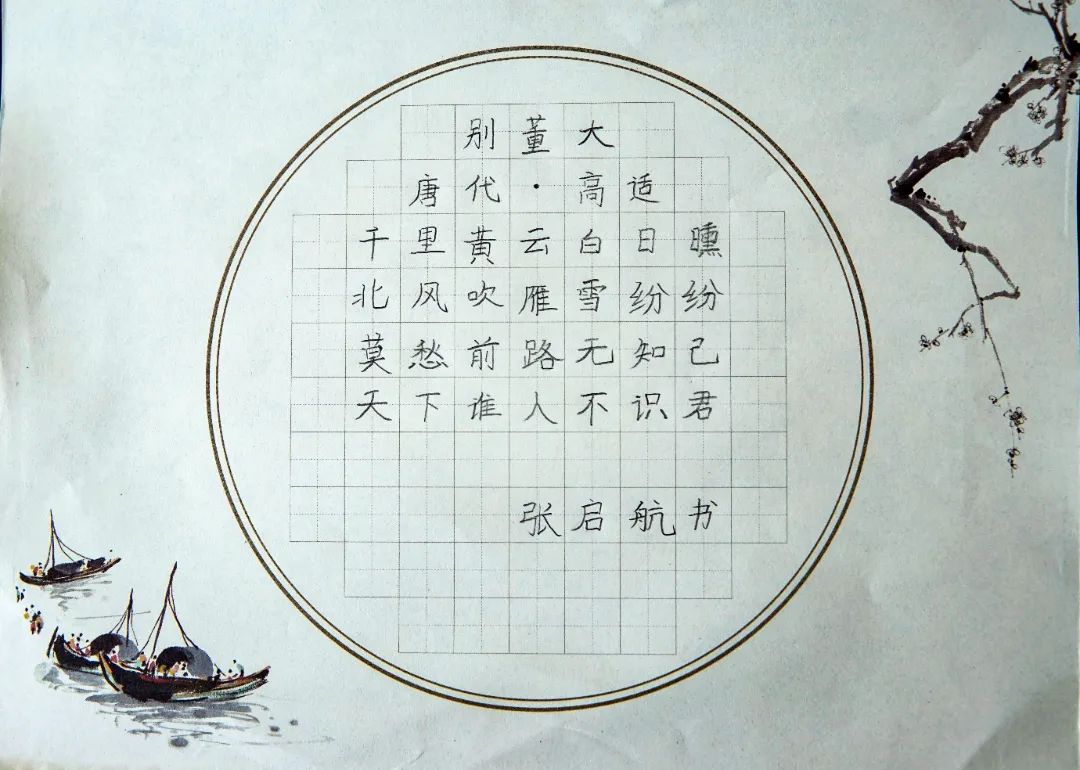 别董大
唐代·高适
千里黄云白日曛
北风吹雁雪纷纷
莫愁前路无知己
天下谁人不识君
张启航书